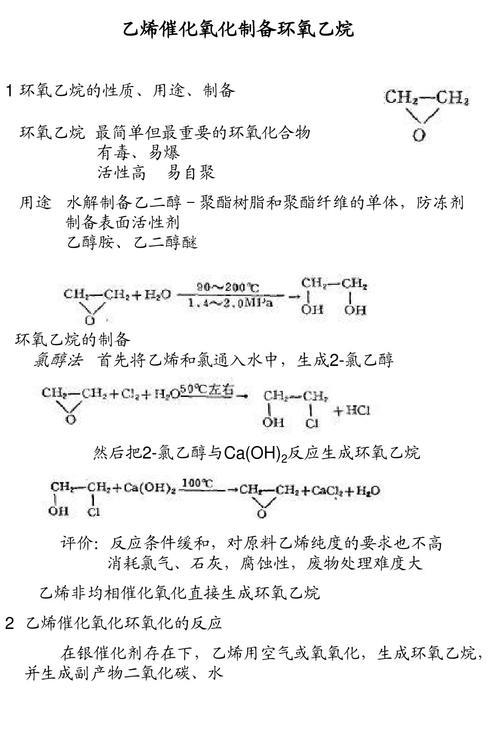 乙烯催化氧化制备环氧乙烷
1 环氧乙烷的性质、用途、制备
CH₂—CH₂
O
环氧乙烷 最简单但最重要的环氧化合物
有毒、易爆
活性高 易自聚
用途 水解制备乙二醇－聚酯树脂和聚酯纤维的单体，防冻剂
制备表面活性剂
乙醇胺、乙二醇醚
CH₂—CH₂+H₂O 90～200℃ 1.4～2.0MPa → CH₂—CH₂
O OH OH
环氧乙烷的制备
氯醇法 首先将乙烯和氯通入水中，生成2-氯乙醇
CH₂—CH₂+Cl₂+H₂O 50℃左右 → CH₂—CH₂ +HCl
O OH Cl
然后把2-氯乙醇与Ca(OH)₂反应生成环氧乙烷
CH₂—CH₂+Ca(OH)₂ 100℃ →CH₂—CH₂+CaCl₂+H₂O
OH Cl O
评价：反应条件缓和，对原料乙烯纯度的要求也不高
消耗氯气、石灰，腐蚀性，废物处理难度大
乙烯非均相催化氧化直接生成环氧乙烷
2 乙烯催化氧化环氧化的反应
在银催化剂存在下，乙烯用空气或氧氧化，生成环氧乙烷，
并生成副产物二氧化碳、水